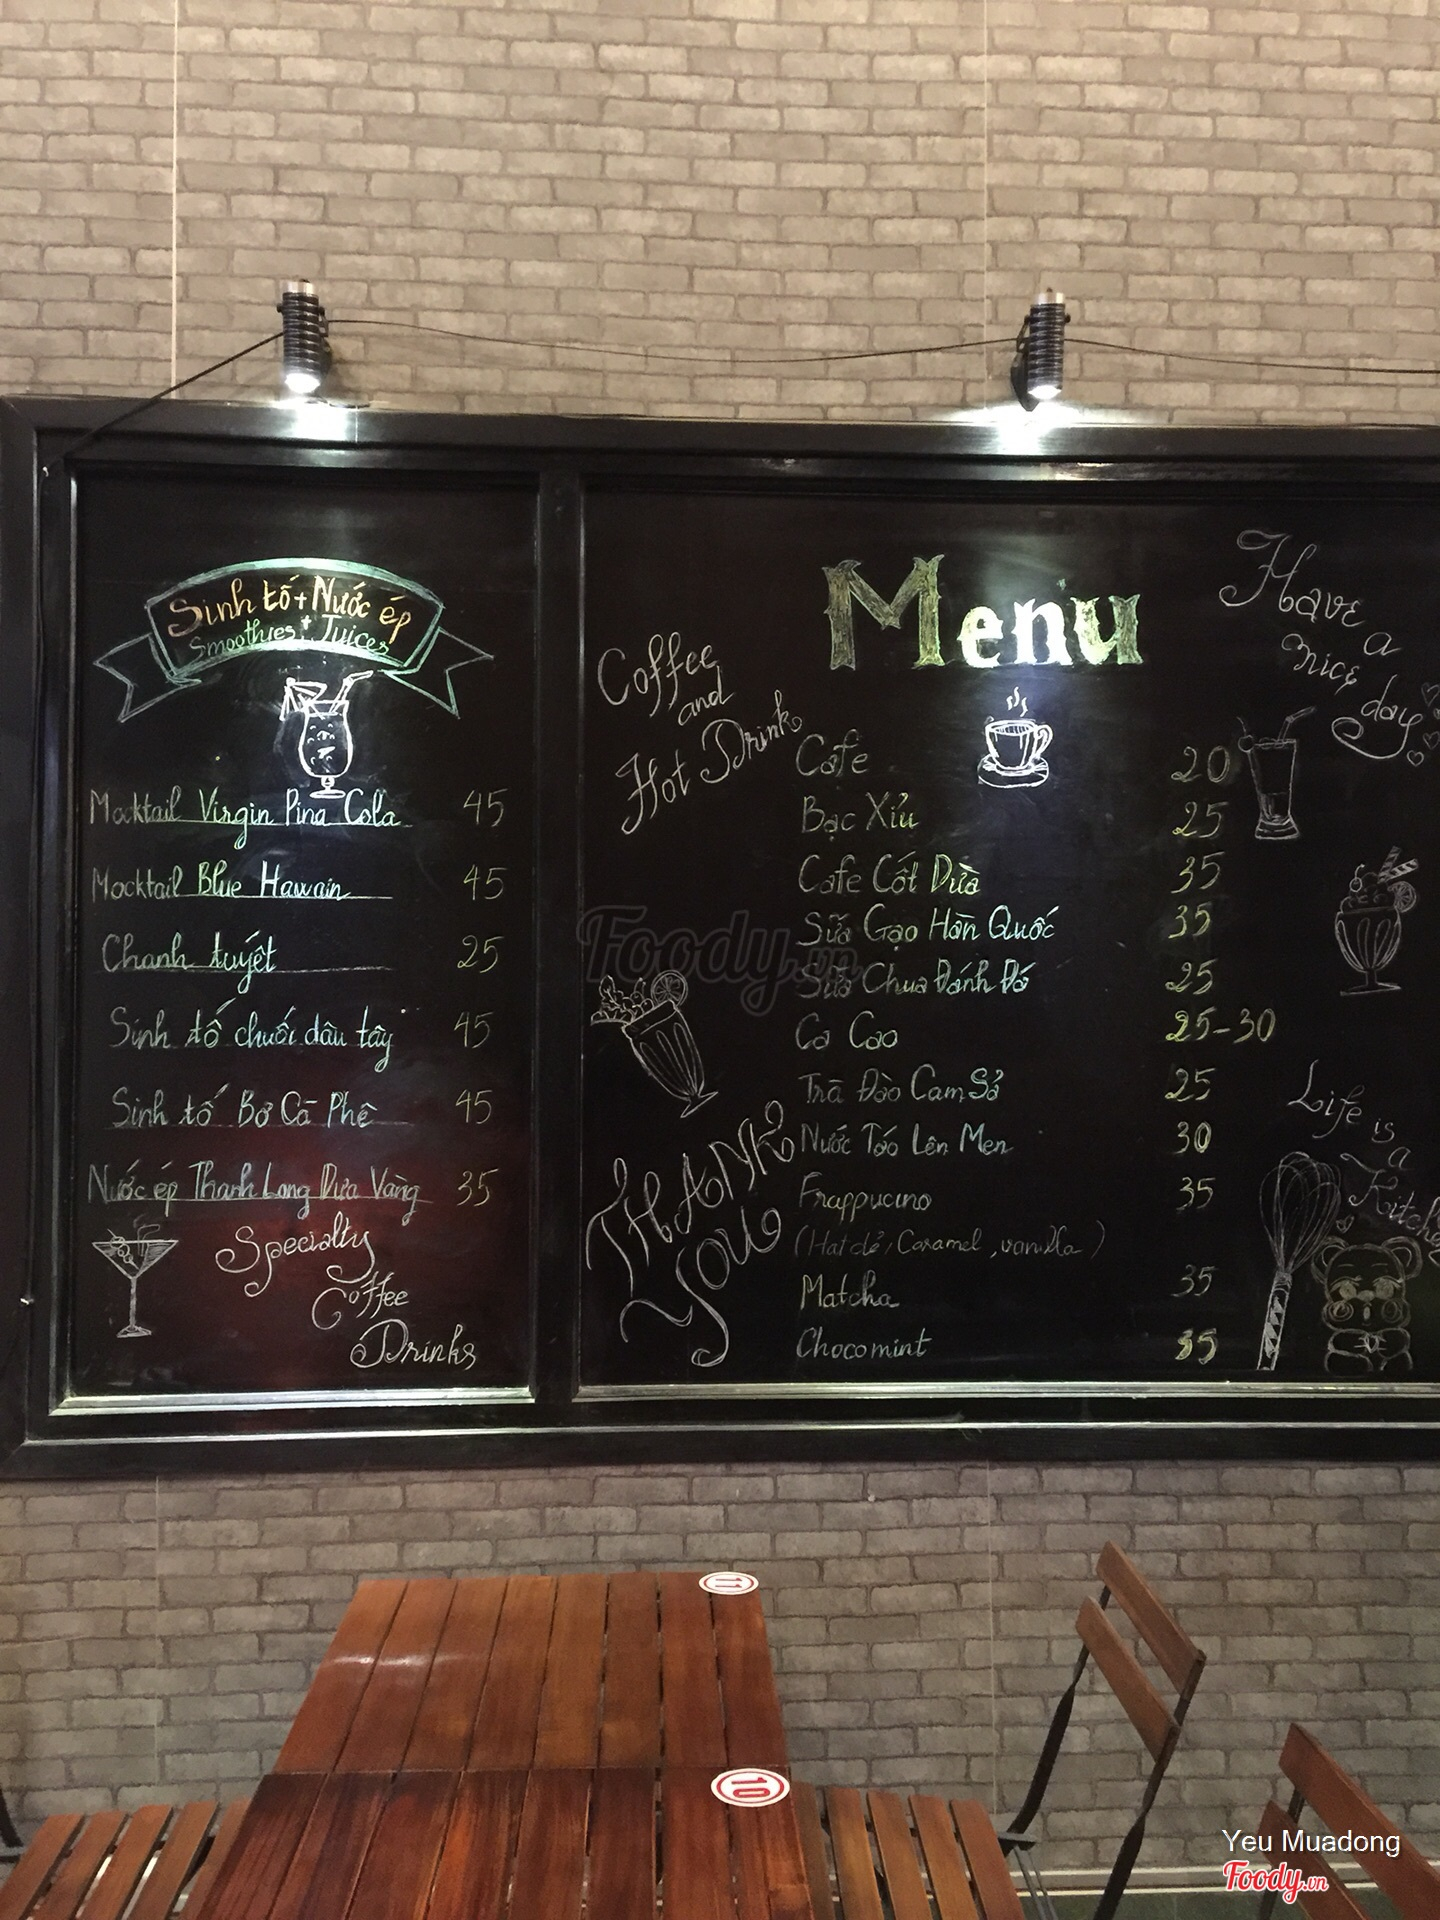 Sinh tố + Nước ép
Smoothies + Juices
Mocktail Virgin Pina Cola 45
Mocktail Blue Hawain 45
Chanh tuyết 25
Sinh tố chuối dâu tây 45
Sinh tố Bơ Cà Phê 45
Nước ép Thanh Long Dưa Vàng 35
Specialty
Coffee
Drinks
Menu
Coffee
and
Hot Drink
Cafe 20
Bạc Xỉu 25
Cafe Cốt Dừa 35
Sữa Gạo Hàn Quốc 35
Sữa Chua Đánh Đá 25
Ca Cao 25-30
Trà Đào Cam Sả 25
Nước Táo Lên Men 30
Frappucino 35
(Hat dẻ, Caramel, vanilla)
Matcha 35
Chocomint 35
THANK
YOU
Have
a
nice
day
Life is
a
Kitche
Foody.vn
11
10
Yeu Muadong
Foody.vn